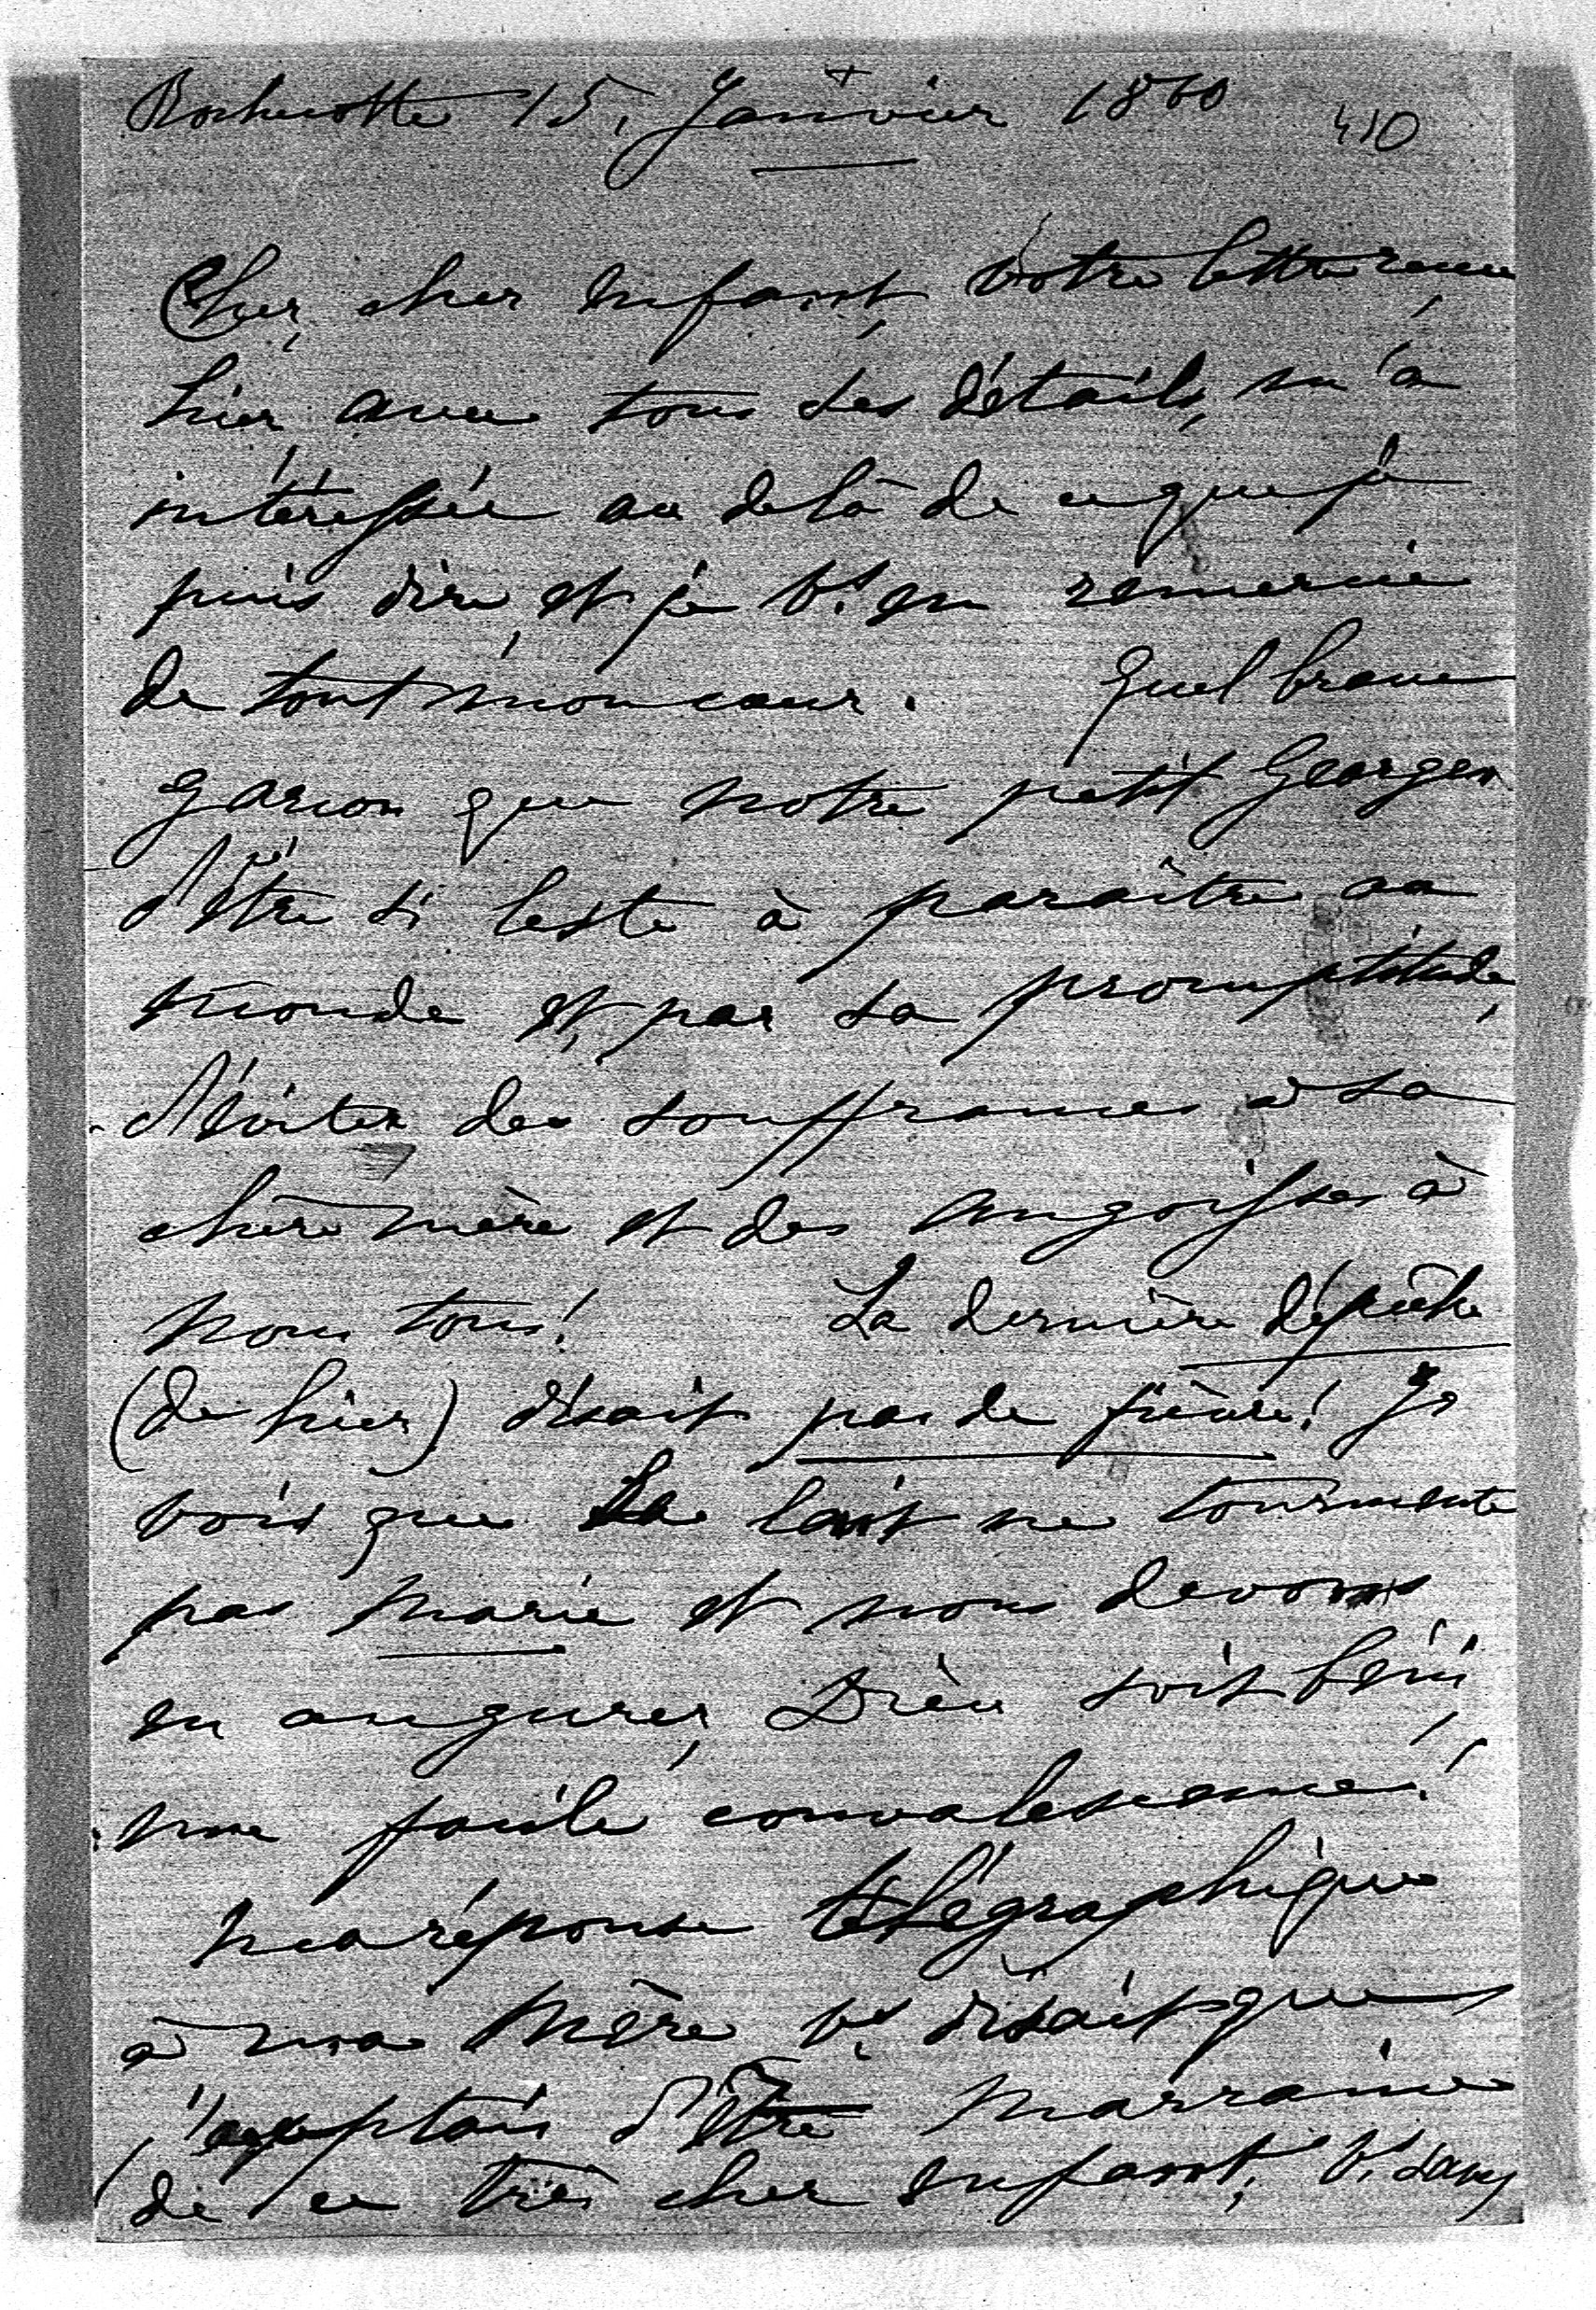 Rochecotte 15, Janvier 1860
410
Cher, cher enfant, votre lettre reçue,
hier, avec tous ses détails, m'a
intéressée au delà de ce que je
puis dire, et je vs en remercie
de tout mon cœur. Quel brave
garçon que notre petit Georges
d'être si leste à paraître au
monde et, par sa promptitude,
d'éviter des souffrances à sa
chère mère et des angoisses à
nous tous! La dernière dépêche
(de hier) disait pas de fièvre! Je
vois que le lait ne tourmente
pas Marie et nous devons
en augurer, Dieu soit béni,
une facile convalescence!
Ma réponse télégraphique
à ma Mère vs disait que
j'acceptais d'être Marraine
de ce très cher enfant; vs savez